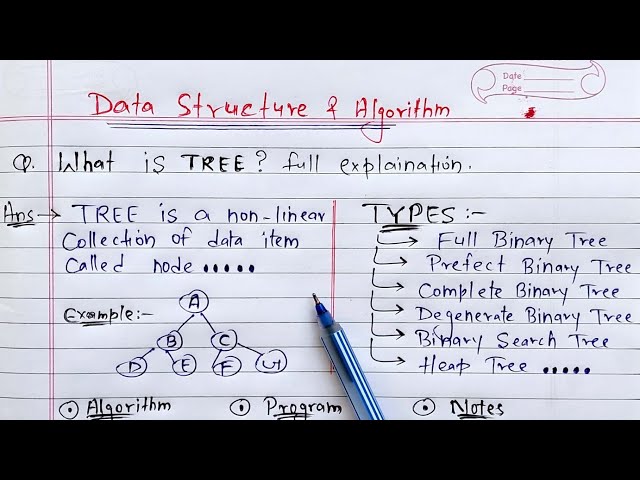 Date
Page
Data Structure & Algorithm
Q. What is TREE? full explaination.
Ans → TREE is a non-linear
Collection of data item
Called node •••••
Example:-
A
B C
D E F G
TYPES :-
→ Full Binary Tree
→ Prefect Binary Tree
→ Complete Binary Tree
→ Degenerate Binary Tree
→ Binary Search Tree
→ Heap Tree •••••
Algorithm
Program
Notes